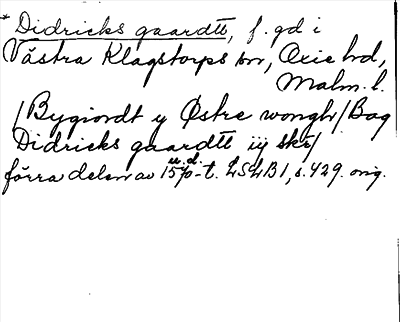 * Didricks gaardtt, f. gd i
Västra Klagstorps sn, Oxie hd,
Malm. l.
/Bygiordt y Østre wongh/Bag
Didricks gaardtt iij skr/
förra delen av 1570-t. LSLB1, s. 429. orig.
u. d.